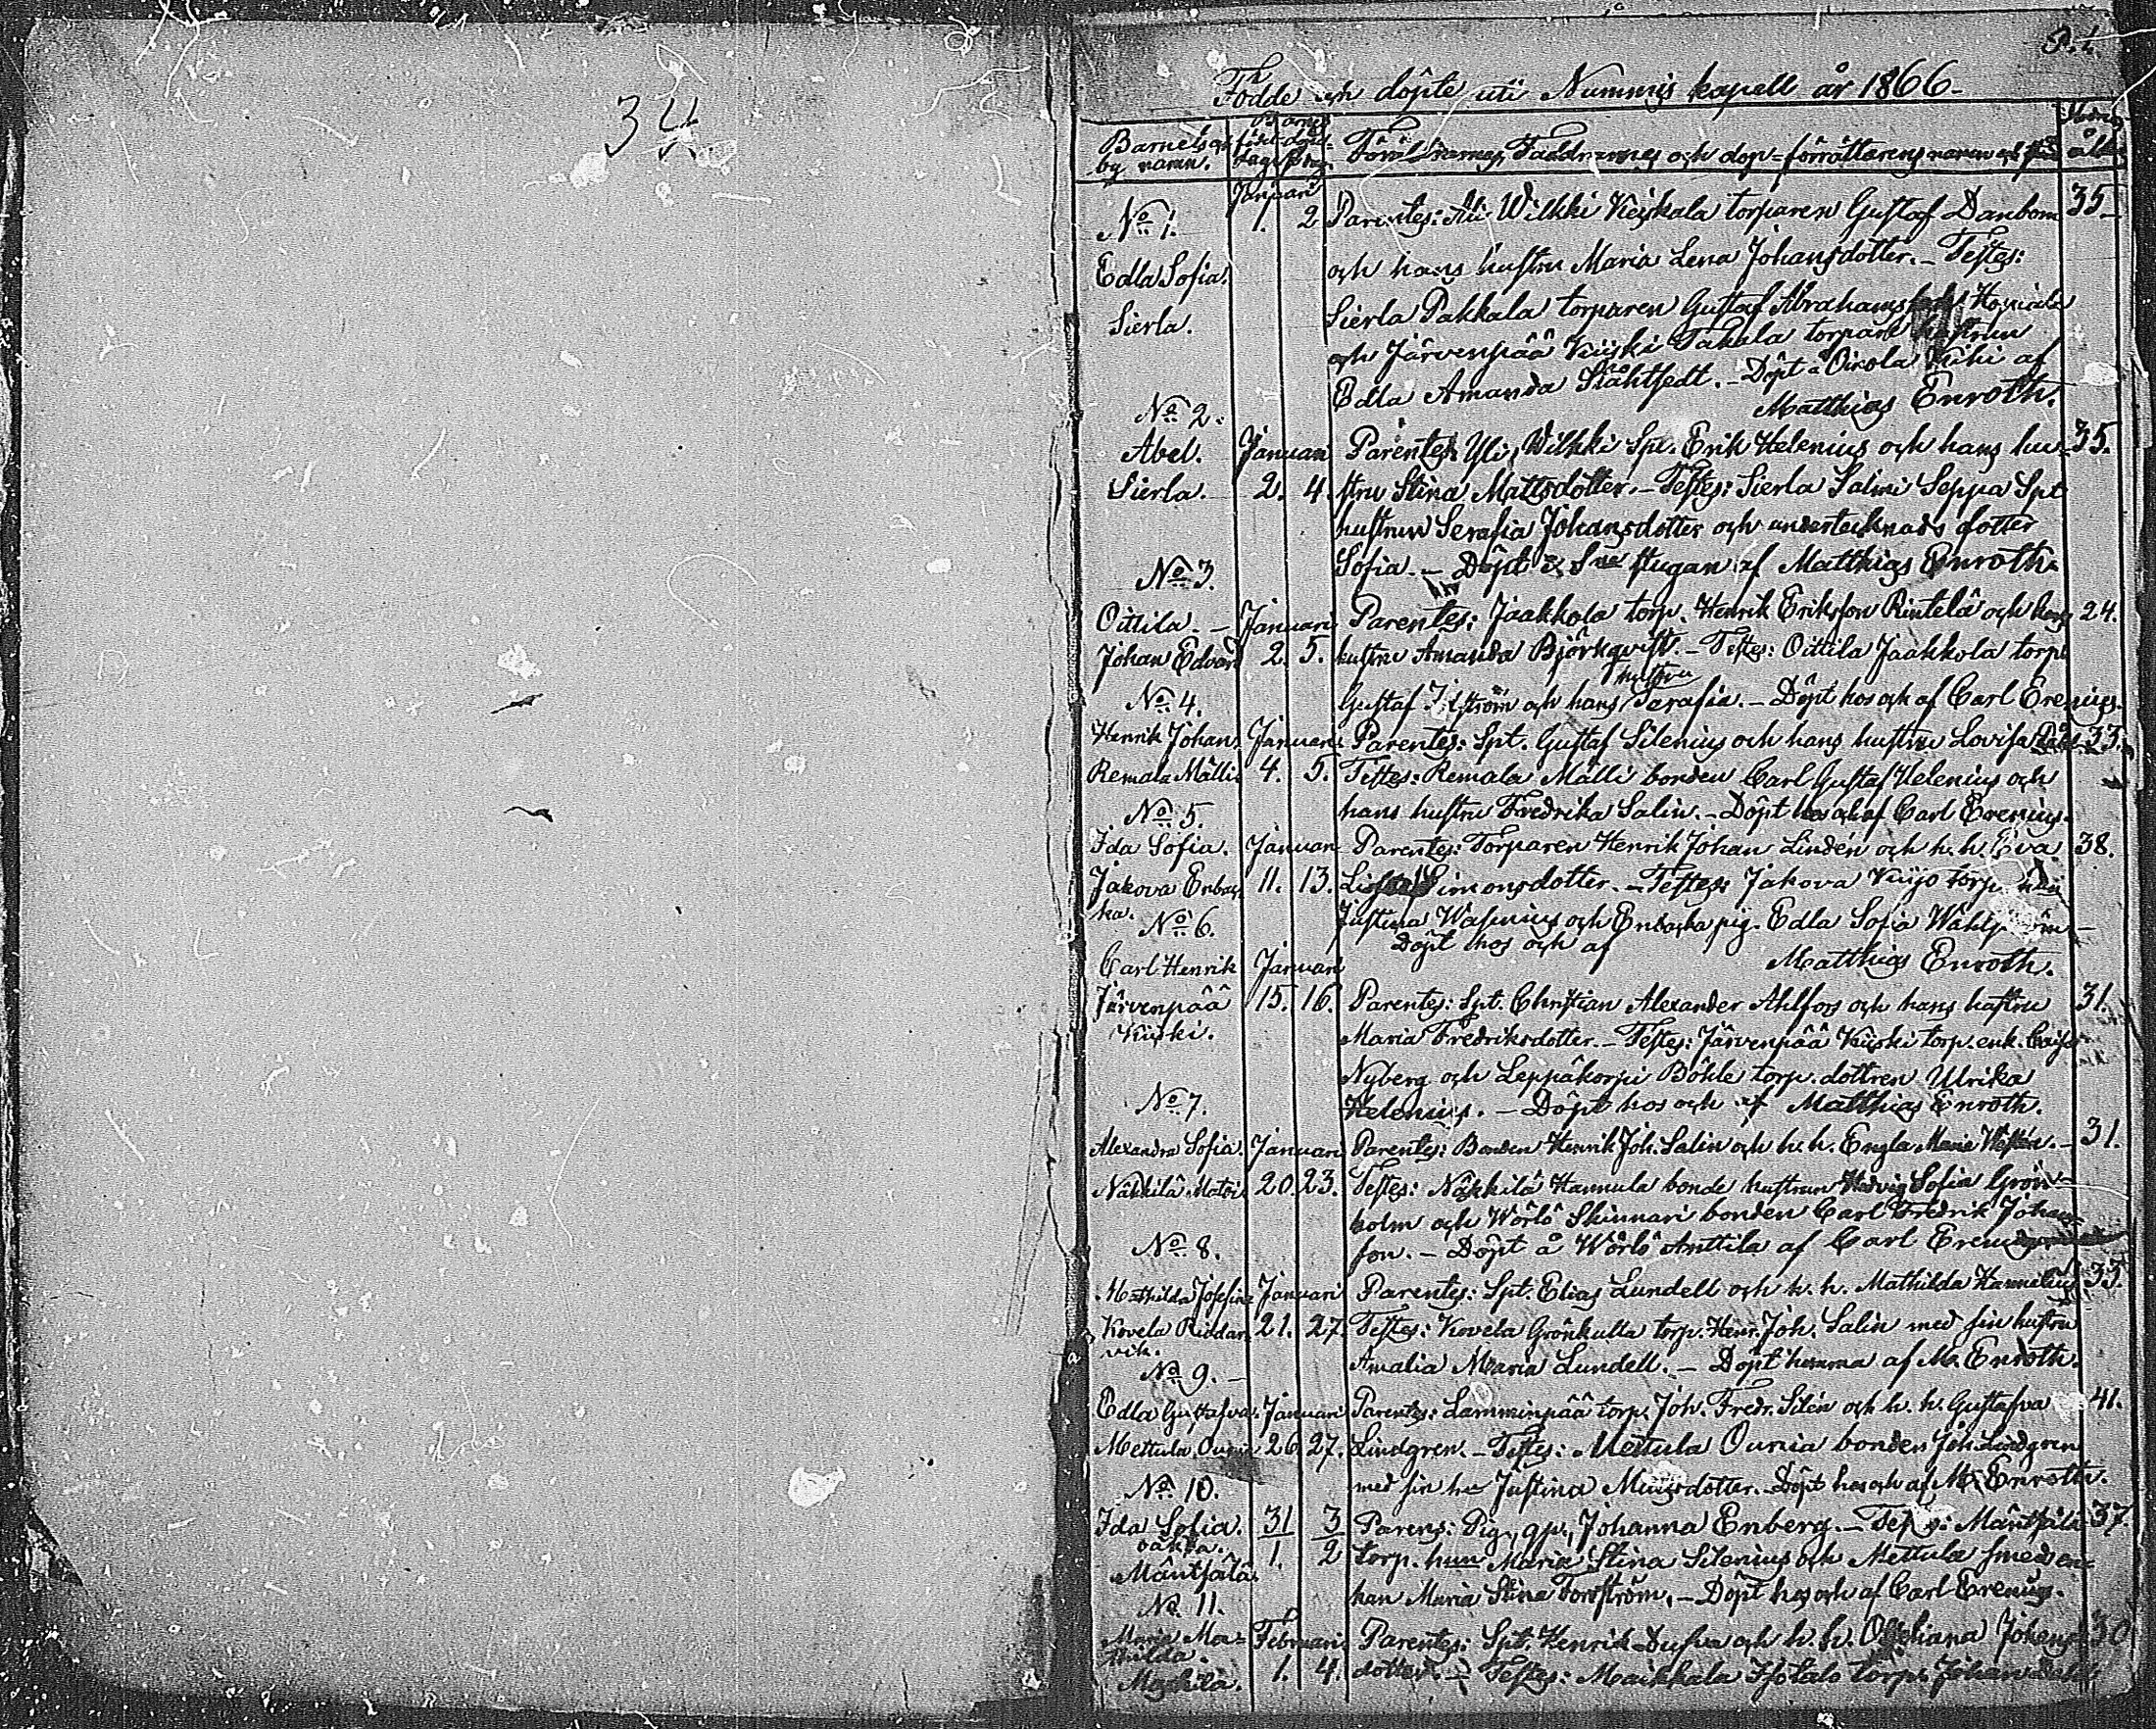 34.
P. 1.
Födde och döpte uti Nummis kapell år 1866.
Barnets och by namn. Barnets födel. dag döpel. dag. Föräldrarnes, Faddrarnes och dop-förrättarens namn Modrens ålder
Januari
No 1. 1. 2 Parentes: Wilkki Keskala torparen Gustaf Danbom 35
Edla Sofia. och hans hustru Maria Lena Johansdotter. – Testes:
Sierla. Sierla Pakkala torparen Gustaf Abrahamsson
och Järvenpää Kiiski Takala torpare hustrun
Edla Amanda Ståhlstedt. – Döpt å Oinola af
No 2. Matthias Enroth.
Abel. Januari Parentes: Yli Wilkki Spt. Erik Helenius och hans hu= 35.
Sierla. 2. 4. stru Stina Mattsdotter. – Testes: Sierla Salmi Seppä Spt
hustrun Serafia Johansdotter och undertecknads dotter
No 3. Sofia. – Döpt i stugan af Matthias Enroth.
Oittila. – Januari Parentes: Jaakkola torp. Henrik Eriksson Rintelä och hans 24.
Johan Edvard 2. 5. hustru Amanda Björkqvist. – Testes: Oittila Jaakkola torp.
hustru
No 4. Gustaf och hans Serafia. – Döpt hos och af Carl Erenius.
Henrik Johan. Januari Parentes: Spt. Gustaf Silenius och hans hustru Lovisa 33.
Remala Mälli 4. 5. Testes: Remala Mälli bonden Carl Gustaf Helenius och
No 5. hans hustru Fredrika Salin. – Döpt hos och af Carl Erenius.
Ida Sofia. Januari Parentes: Torparen Henrik Johan Lindén och h. h. Eva 38.
Jakova Enbas 11. 13. Simonsdotter. – Testes: Jakova Kuijo torp.
ka. No 6. Justina Wasenius och Enbaska pig. Edla Sofia Wahlström –
Döpt hos och af
Carl Henrik Januari Matthias Enroth.
Järvenpää 15. 16. Parentes: Spt. Christian Alexander Ahlfors och hans hustru 31.
Kiiski. Maria Fredriksdotter. – Testes: Järvenpää Kiiski torp. enk. Caisa
Nyberg och Leppäkorpi Böhle torp. dottren Ulrika
No 7. Helenius. – Döpt hos och af Matthias Enroth.
Alexandra Sofia. Januari Parentes: Bonden Henrik Joh. Salin och h. h. Engla Maria – 31.
Näkkilä Mattis 20. 23. Testes: Näkkilä Hannula bonde hustrun Hedvig Sofia Grön=
holm och Wörlö Skinnari bonden Carl Fredrik Johans=
No 8. son. – Döpt å Wörlö Anttila af Carl Erenius
Mathilda Josefina Januari Parentes: Spt. Elias Lundell och h. h. Mathilda Hannelius 33.
Kovela Riddar 21. 27. Testes: Kovela Grönkulla torp. Henr. Joh. Salin med sin hustru
vik. Amalia Maria Lundell. – Döpt hemma af M. Enroth.
No 9. –
Edla Gustafva. Januari Parentes: Lamminpää torp. Joh. Fredr. Silén och h. h. Gustafva 41.
Mettula Ounia 26. 27. Lindgren. – Testes: Mettula Ounia bonden Joh. Lindgren
No 10. med sin h. Justina Magsdotter. Döpt hos och af M. Enroth.
Ida Sofia. 31 3 Parens: Pig. qp. Johanna Enberg. – Testes: Mäntsälä 37.
oäkta. 1. 2 torp. hun Maria Stina Silenius och Mettula smed en=
Mäntsälä.
No. 11. kan Maria Stina Forsström. – Döpt hos och af Carl Erenius.
Maria Ma= Februari Parentes: Spt. Henrik Dufva och h. h. Johans 30
thilda. 1. 4. dotter. – Testes: Maikkala Isotalo torp. Johan
Maskila.